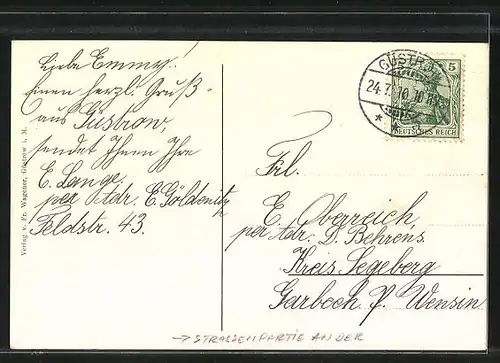 Liebe Emmy!
Einen herzl. Gruß
aus Güstrow,
sendet Ihnen Ihre
E. Lange.
per Adr. E. Göldenitz
Feldstr. 43.
Verlag v. Fr. Wagener, Güstrow i. M.
GÜSTROW
24.7.10.10
5
DEUTSCHES REICH
Frl.
E. Oberreich,
per Adr. D. Behrens,
Kreis Segeberg
Garbeck P. Wensin
→ STRASSENPARTIE AN DER